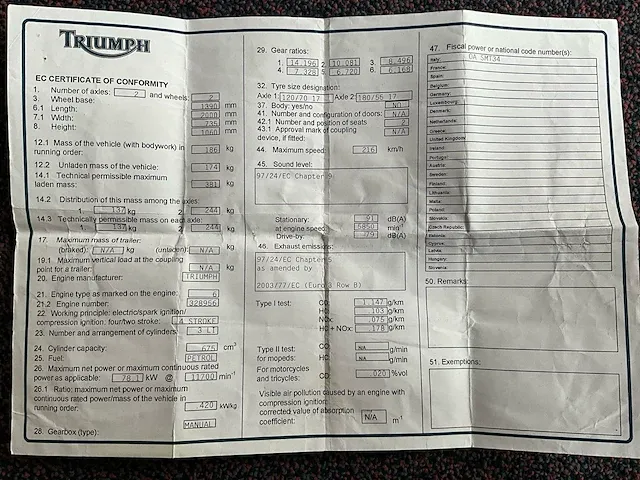 TRIUMPH
EC CERTIFICATE OF CONFORMITY
1. Number of axles: 2 and wheels: 2
3. Wheel base: 1390 mm
6.1 Length: 2000 mm
7.1 Width: 735 mm
8. Height: 1060 mm
12.1 Mass of the vehicle (with bodywork) in
running order: 186 kg
12.2 Unladen mass of the vehicle: 174 kg
14.1 Technical permissible maximum
laden mass: 381 kg
14.2 Distribution of this mass among the axles:
1. 137 kg 2. 244 kg
14.3 Technically permissible mass on each axle:
1. 137 kg 2. 244 kg
17. Maximum mass of trailer:
(braked): N/A kg (unladen): N/A kg
19.1 Maximum vertical load at the coupling
point for a trailer: N/A kg
20. Engine manufacturer: TRIUMPH
21. Engine type as marked on the engine: 6
21.2 Engine number: 328956
22. Working principle: electric/spark ignition/
compression ignition: four/two stroke: 4 STROKE
23. Number and arrangement of cylinders: 3 LI
24. Cylinder capacity: 675 cm³
25. Fuel: PETROL
26. Maximum net power or maximum continuous rated
power as applicable: 78.1 kW @ 11700 min⁻¹
26.1 Ratio: maximum net power or maximum
continuous rated power/mass of the vehicle in
running order: .420 kW/kg
28. Gearbox (type): MANUAL
29. Gear ratios:
1. 14.196 2. 10.081 3. 8.496
4. 7.328 5. 6.720 6. 6.168
32. Tyre size designation:
Axle 1: 120/70 17 Axle 2: 180/55 17
37. Body: yes/no NO
41. Number and configuration of doors: N/A
42.1 Number and position of seats 2
43.1 Approval mark of coupling
device, if fitted: N/A
44. Maximum speed: 216 km/h
45. Sound level:
97/24/EC Chapter 9
Stationary: 91 dB(A)
at engine speed: 6850 min⁻¹
Drive-by: 79 dB(A)
46. Exhaust emissions:
97/24/EC Chapter 5
as amended by
2003/77/EC (Euro 3 Row B)
Type I test: CO: 1.147 g/km
HC: .103 g/km
NOx: .075 g/km
HC + NOx: .178 g/km
Type II test: CO: N/A g/min
for mopeds: HC: N/A g/min
For motorcycles
and tricycles: CO: .020 %vol
Visible air pollution caused by an engine with
compression ignition:
corrected value of absorption
coefficient: N/A m⁻¹
47. Fiscal power or national code number(s):
Italy: OA SMT34
France:
Spain:
Belgium:
Germany:
Luxembourg:
Denmark:
Netherlands:
Greece:
United Kingdom:
Ireland:
Portugal:
Austria:
Sweden:
Finland:
Lithuania:
Malta:
Poland:
Slovakia:
Czech Republic:
Estonia:
Cyprus:
Latvia:
Hungary:
Slovenia:
50. Remarks:
51. Exemptions: